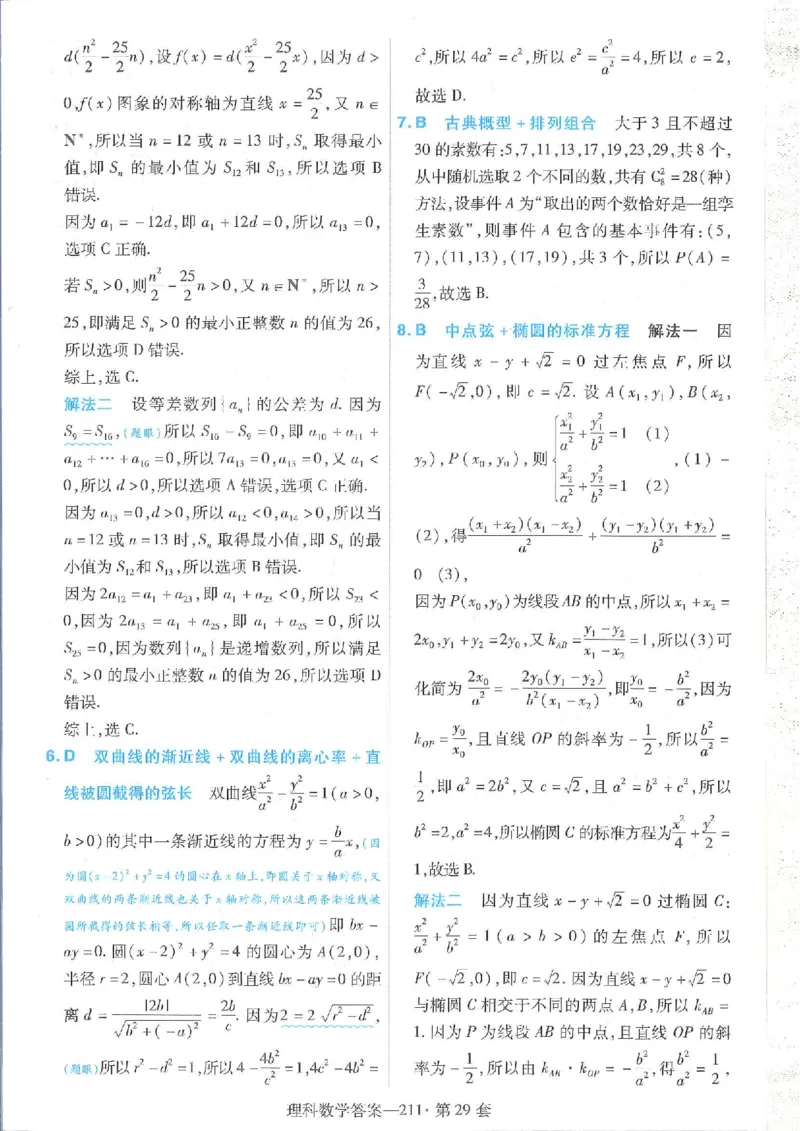 d(n²/2 - 25/2 n),设f(x) = d(x²/2 - 25/2 x),因为 d >
0,f(x)图象的对称轴为直线 x = 25/2,又 n ∈
N*,所以当 n = 12 或 n = 13 时,Sₙ 取得最小
值,即 Sₙ 的最小值为 S₁₂ 和 S₁₃,所以选项 B
错误.
因为 a₁ = -12d,即 a₁ + 12d = 0,所以 a₁₃ = 0,
选项 C 正确.
若 Sₙ > 0,则 n²/2 - 25/2 n > 0,又 n ∈ N*,所以 n >
25,即满足 Sₙ > 0 的最小正整数 n 的值为 26,
所以选项 D 错误.
综上,选 C.
解法二 设等差数列{aₙ}的公差为 d. 因为
S₉ = S₁₆,(题眼)所以 S₁₆ - S₉ = 0,即 a₁₀ + a₁₁ +
a₁₂ + ⋯ + a₁₆ = 0,所以 7a₁₃ = 0,a₁₃ = 0,又 a₁ <
0,所以 d > 0,所以选项 A 错误,选项 C 正确.
因为 a₁₃ = 0,d > 0,所以 a₁₂ < 0,a₁₄ > 0,所以当
n = 12 或 n = 13 时,Sₙ 取得最小值,即 Sₙ 的最
小值为 S₁₂ 和 S₁₃,所以选项 B 错误.
因为 2a₁₂ = a₁ + a₂₃,即 a₁ + a₂₃ < 0,所以 S₂₃ <
0,因为 2a₁₃ = a₁ + a₂₅,即 a₁ + a₂₅ = 0,所以
S₂₅ = 0,因为数列{aₙ}是递增数列,所以满足
Sₙ > 0 的最小正整数 n 的值为 26,所以选项 D
错误.
综上,选 C.
6. D 双曲线的渐近线 + 双曲线的离心率 + 直
线被圆截得的弦长 双曲线 x²/a² - y²/b² = 1(a > 0,
b > 0)的其中一条渐近线的方程为 y = b/a x,(因
为圆(x-2)² + y² = 4 的圆心在 x 轴上,即圆关于 x 轴对称,又
双曲线的两条渐近线也关于 x 轴对称,所以这两条渐近线被
圆所截得的弦长相等,所以任取一条渐近线即可)即 bx -
ay = 0. 圆(x - 2)² + y² = 4 的圆心为 A(2,0),
半径 r = 2,圆心 A(2,0)到直线 bx - ay = 0 的距
离 d = |2b|/√(b² + (-a)²) = 2b/c. 因为 2 = 2√(r² - d²),
(题眼)所以 r² - d² = 1,所以 4 - 4b²/c² = 1,4c² - 4b² =
c²,所以 4a² = c²,所以 e² = c²/a² = 4,所以 e = 2,
故选 D.
7. B 古典概型 + 排列组合 大于 3 且不超过
30 的素数有:5,7,11,13,17,19,23,29,共 8 个,
从中随机选取 2 个不同的数,共有 C₈² = 28(种)
方法,设事件 A 为“取出的两个数恰好是一组孪
生素数”,则事件 A 包含的基本事件有:(5,
7),(11,13),(17,19),共 3 个,所以 P(A) =
3/28,故选 B.
8. B 中点弦 + 椭圆的标准方程 解法一 因
为直线 x - y + √2 = 0 过左焦点 F,所以
F(-√2,0),即 c = √2. 设 A(x₁,y₁),B(x₂,
y₂),P(x₀,y₀),则 { x₁²/a² + y₁²/b² = 1 (1) x₂²/a² + y₂²/b² = 1 (2) ,(1) -
(2),得 (x₁ + x₂)(x₁ - x₂)/a² + (y₁ - y₂)(y₁ + y₂)/b² =
0 (3),
因为 P(x₀,y₀)为线段 AB 的中点,所以 x₁ + x₂ =
2x₀,y₁ + y₂ = 2y₀,又 k_AB = (y₁ - y₂)/(x₁ - x₂) = 1,所以(3)可
化简为 2x₀/a² = - 2y₀(y₁ - y₂)/b²(x₁ - x₂),即 y₀/x₀ = - b²/a²,因为
k_OP = y₀/x₀,且直线 OP 的斜率为 - 1/2,所以 b²/a² =
1/2,即 a² = 2b²,又 c = √2,且 a² = b² + c²,所以
b² = 2,a² = 4,所以椭圆 C 的标准方程为 x²/4 + y²/2 =
1,故选 B.
解法二 因为直线 x - y + √2 = 0 过椭圆 C:
x²/a² + y²/b² = 1(a > b > 0)的左焦点 F,所以
F(-√2,0),即 c = √2. 因为直线 x - y + √2 = 0
与椭圆 C 相交于不同的两点 A,B,所以 k_AB =
1. 因为 P 为线段 AB 的中点,且直线 OP 的斜
率为 - 1/2,所以由 k_AB · k_OP = - b²/a²,得 b²/a² = 1/2,
理科数学答案—211·第 29 套